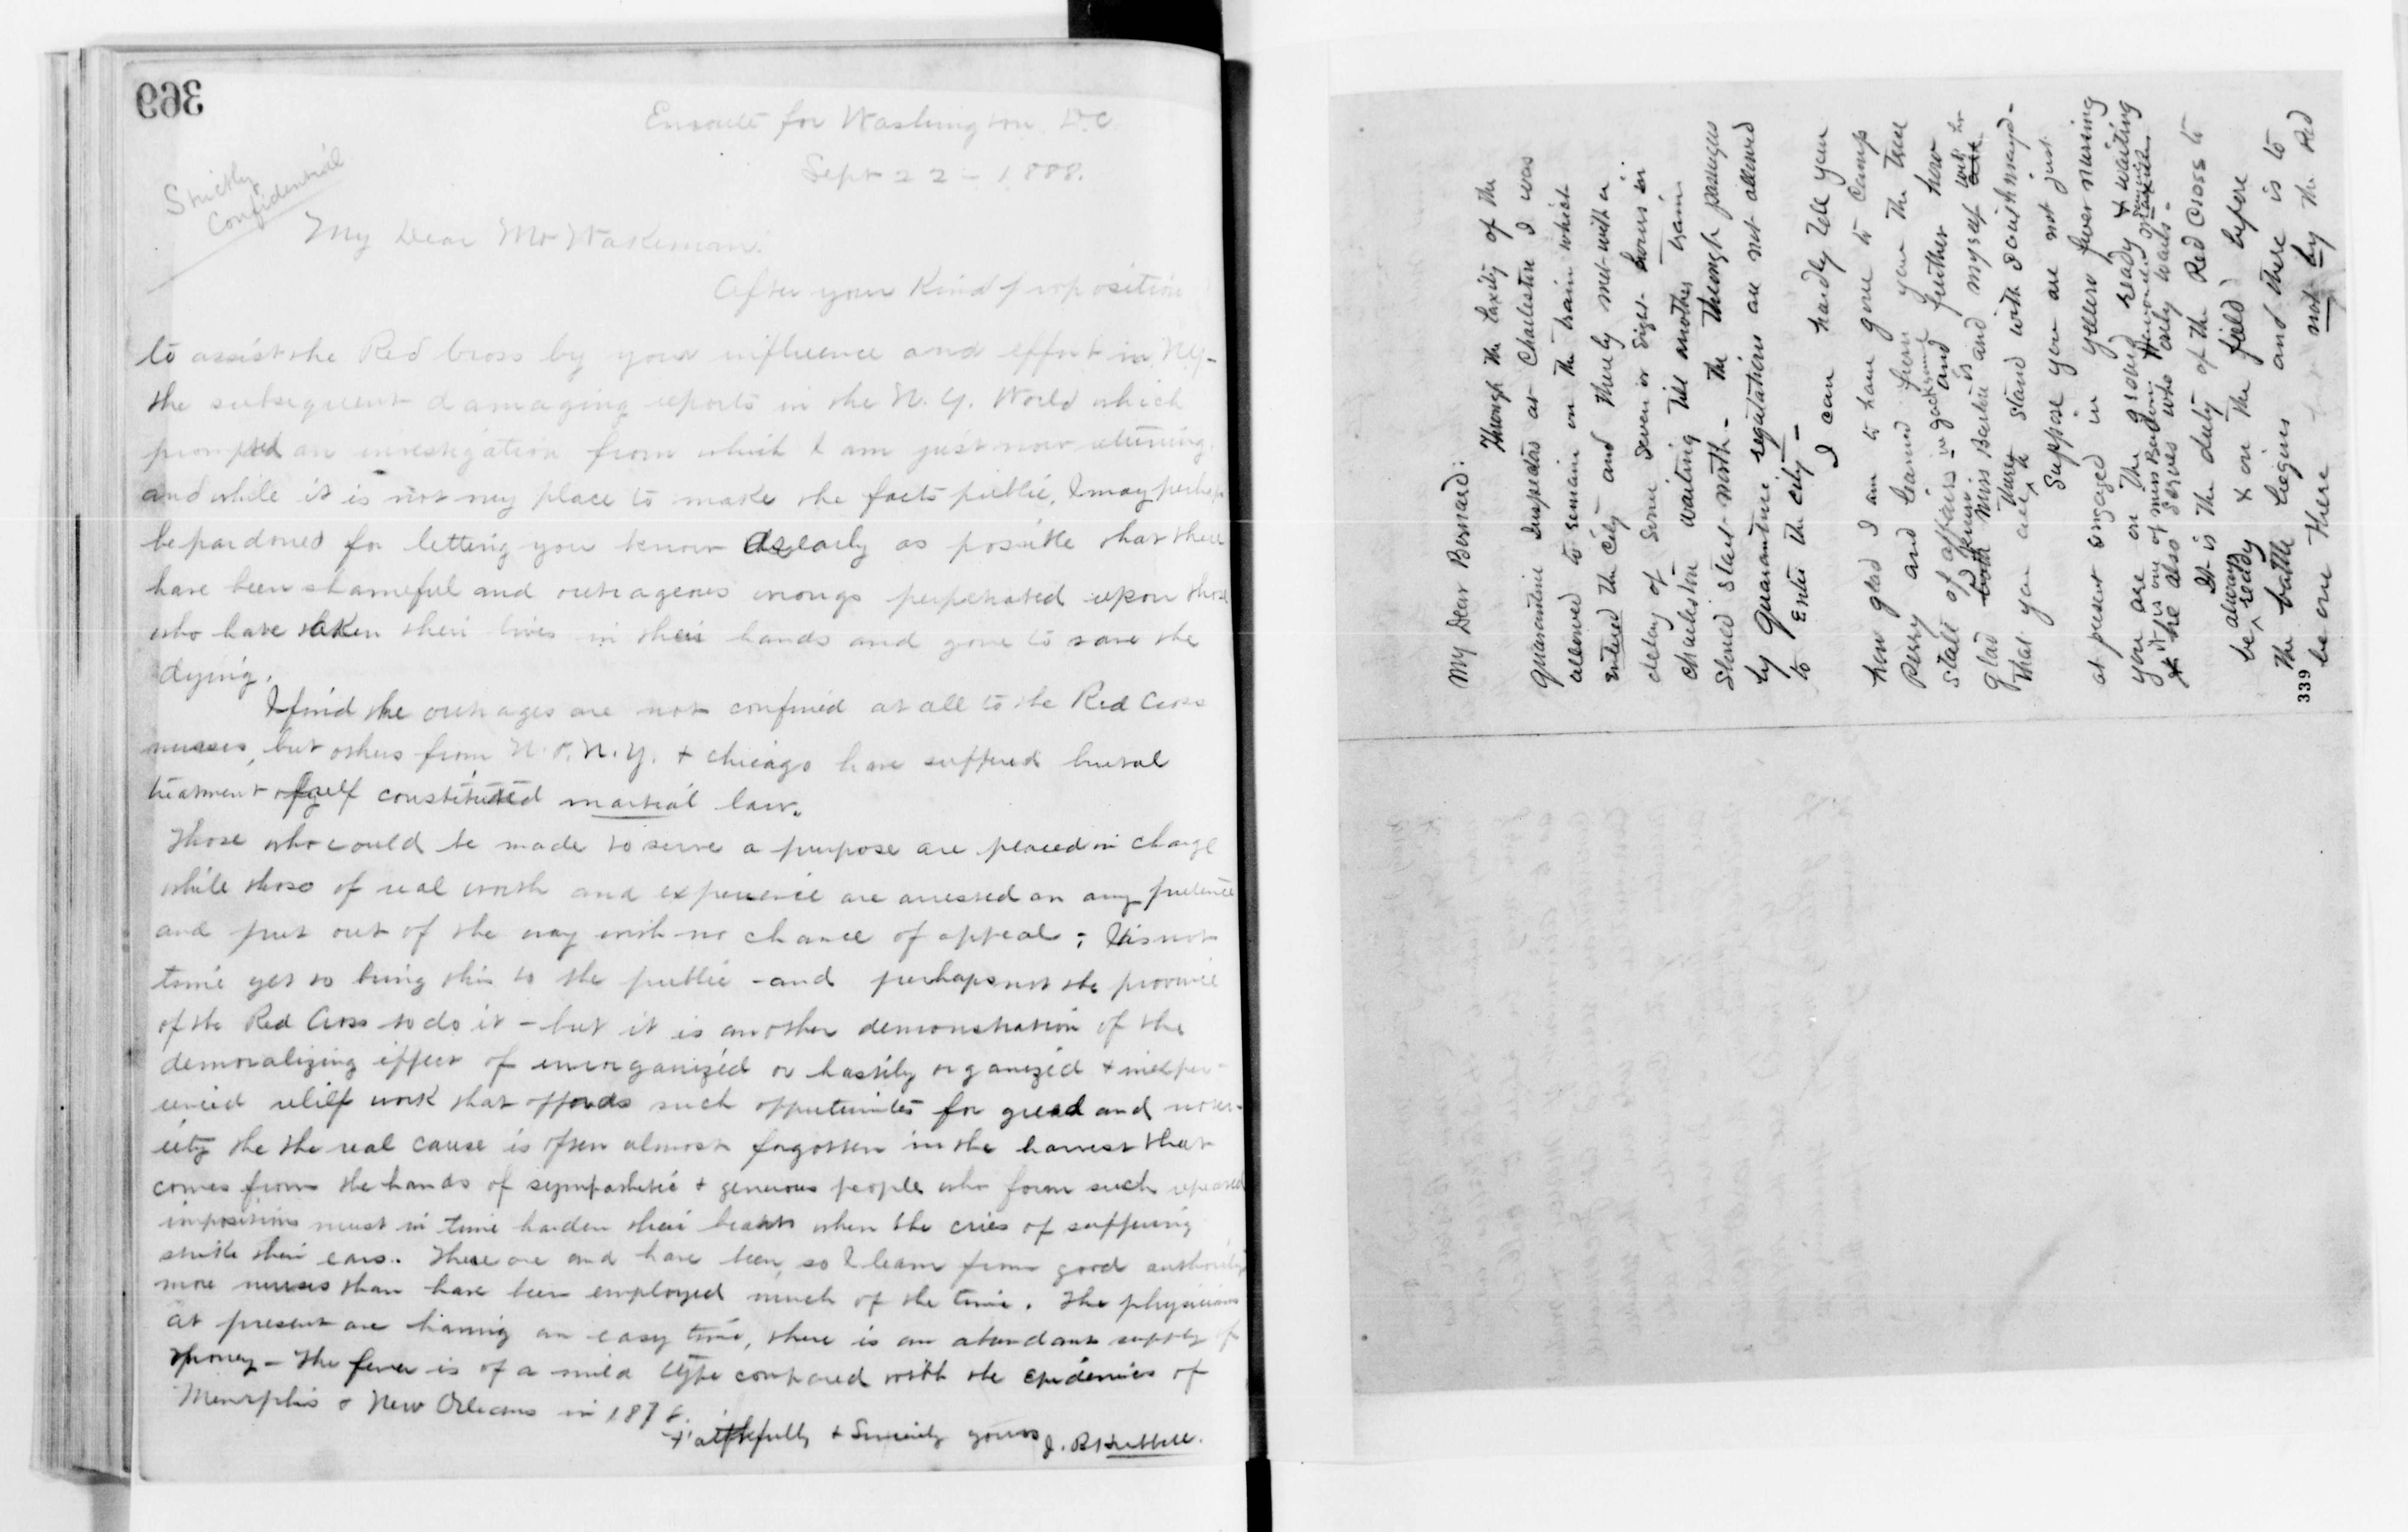 369
Enroute for Washington D.C.
Sept 22 - 1888.
Strictly
Confidential
My Dear Mr Wakeman:
After your Kind proposition
to assist the Red Cross by your influence and effort in N.Y-
the subsequent damaging reports in the N.Y. World which
prompted an investigation from which I am just now returning.
and while it is not my place to make the facts public, I may perhaps
be pardoned for letting you know as early as possible that there
have been shameful and outrageous wrongs perpetrated upon those
who have taken their lives in their hands and gone to save the
dying.
I find the outrages are not confined at all to the Red Cross
nurses, but others from N.O. N.Y. + Chicago have suffered brutal
treatment of self constituted martial law.
Those who could be made to serve a purpose are placed in charge
while those of real worth and experience are arrested on any pretence
and put out of the way with no chance of appeal; It is not
time yet to bring this to the public - and perhaps not the province
of the Red Cross to do it - but it is another demonstration of the
demoralizing effect of unorganized or hastily organized + inexper-
ienced relief work that affords such oppertunites for greed and notor-
iety the the real cause is often almost forgotten in the harvest that
comes from the hands of sympathetic + generous people who from such repeated
impositions must in time harden their hearts when the cries of suffering
strike their ears. There are and have been, so I learn from good authority
more nurses than have been employed much of the time. The physicians
at present are having an easy time, there is an abundant supply of
money - The fever is of a mild type compared with the epidemics of
Memphis & New Orleans in 1878.
Faithfully + Sincerely yours J. B. Hubbell.
My Dear Bernard:
Through the laxity of the
Quarantine Inspector at Charleston I was
allowed to remain on the train which
entered the City and thereby met with a
delay of some seven or eight hours in
Charleston waiting till another train
should start north - the through passengers
by Quarantine regulations are not allowed
to Enter the city -
I can hardly tell you
how glad I am to have gone to Camp
Perry and learned from you the true
state of affairs in Jacksonville and further how
glad both Miss Barton is and myself with her
that you are there to stand with Southmayd -
Suppose you are not just
at present engaged in yellow fever nursing
you are on the ground ready & waiting
It is one of Miss Barton's
& he also serves who only waits -
It is the duty of the Red Cross to
be always ready & on the field before
the battle begins and there is to
be one there not by the Red
339